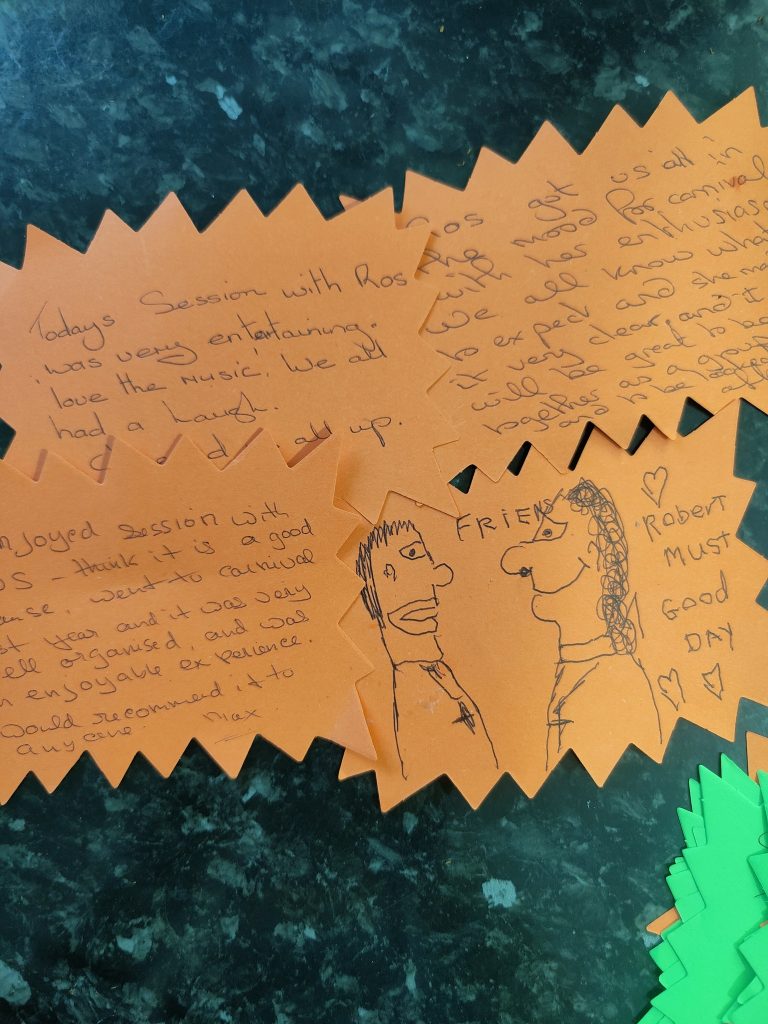 Todays Session with Ros
was very entertaining.
love the Music. We all
had a Laugh.
all up.
Ros got us all in
the mood for carnival
with her
We all know what
to expect and she
it very clear and it
will be great to be
together as a group
and to be
Enjoyed Session with
- think it is a good
went to carnival
year and it was very
organised, and was
enjoyable experience.
Would recommend it to
anyone. Max
FRIEN
Robert
Must
Good
DAY